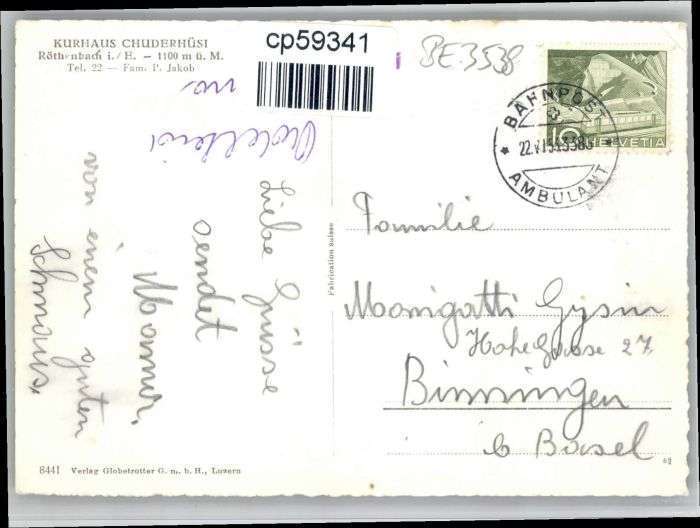 KURHAUS CHUDERHÜSI
Röthenbach i./E. – 1100 m ü. M.
Tel. 22 – Fam. P. Jakob
cp59341
BE 3538
BAHNPOST
AMBULANT
10
HELVETIA
Liebe Grüsse
sendet
Mamur.
von einem guten
Schmaus.
Fabrication suisse
Familie
Monigatti Gysin
Hohe Gasse 27,
Binningen
b Basel
8441 Verlag Globetrotter G. m. b. H., Luzern